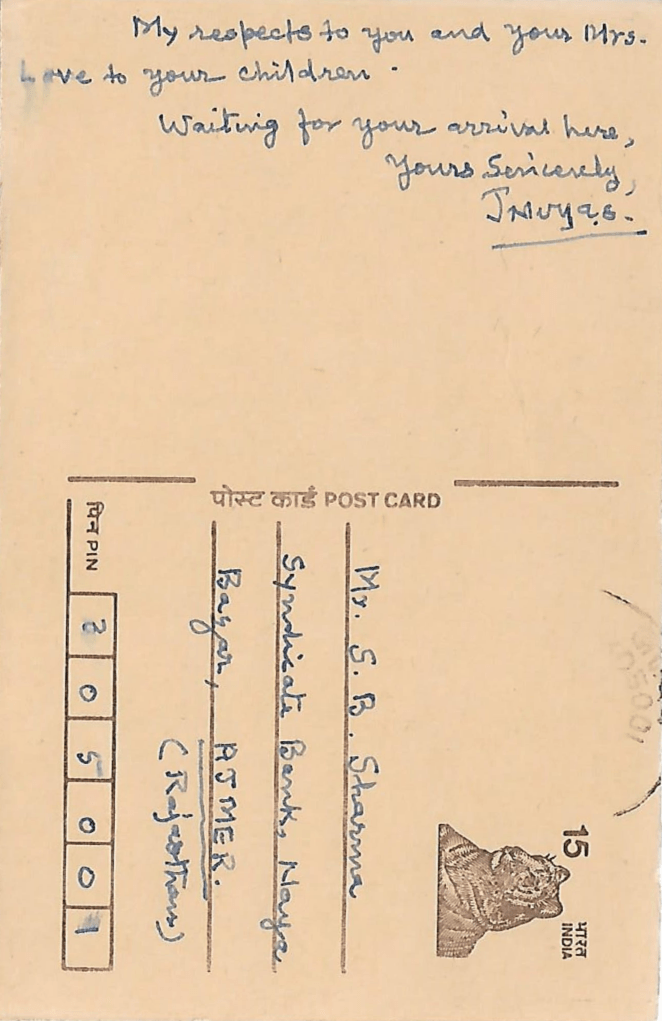 My respects to you and your Mrs.
Love to your children.
Waiting for your arrival here,
Yours Sericerely,
JNvyas.
पोस्ट कार्ड POST CARD
Mr. S. B. Sharma
Syndicate Bank, Naya
Bazar, AJMER.
(Rajasthan)
पिन PIN
3 0 5 0 0 1
15
भारत
INDIA